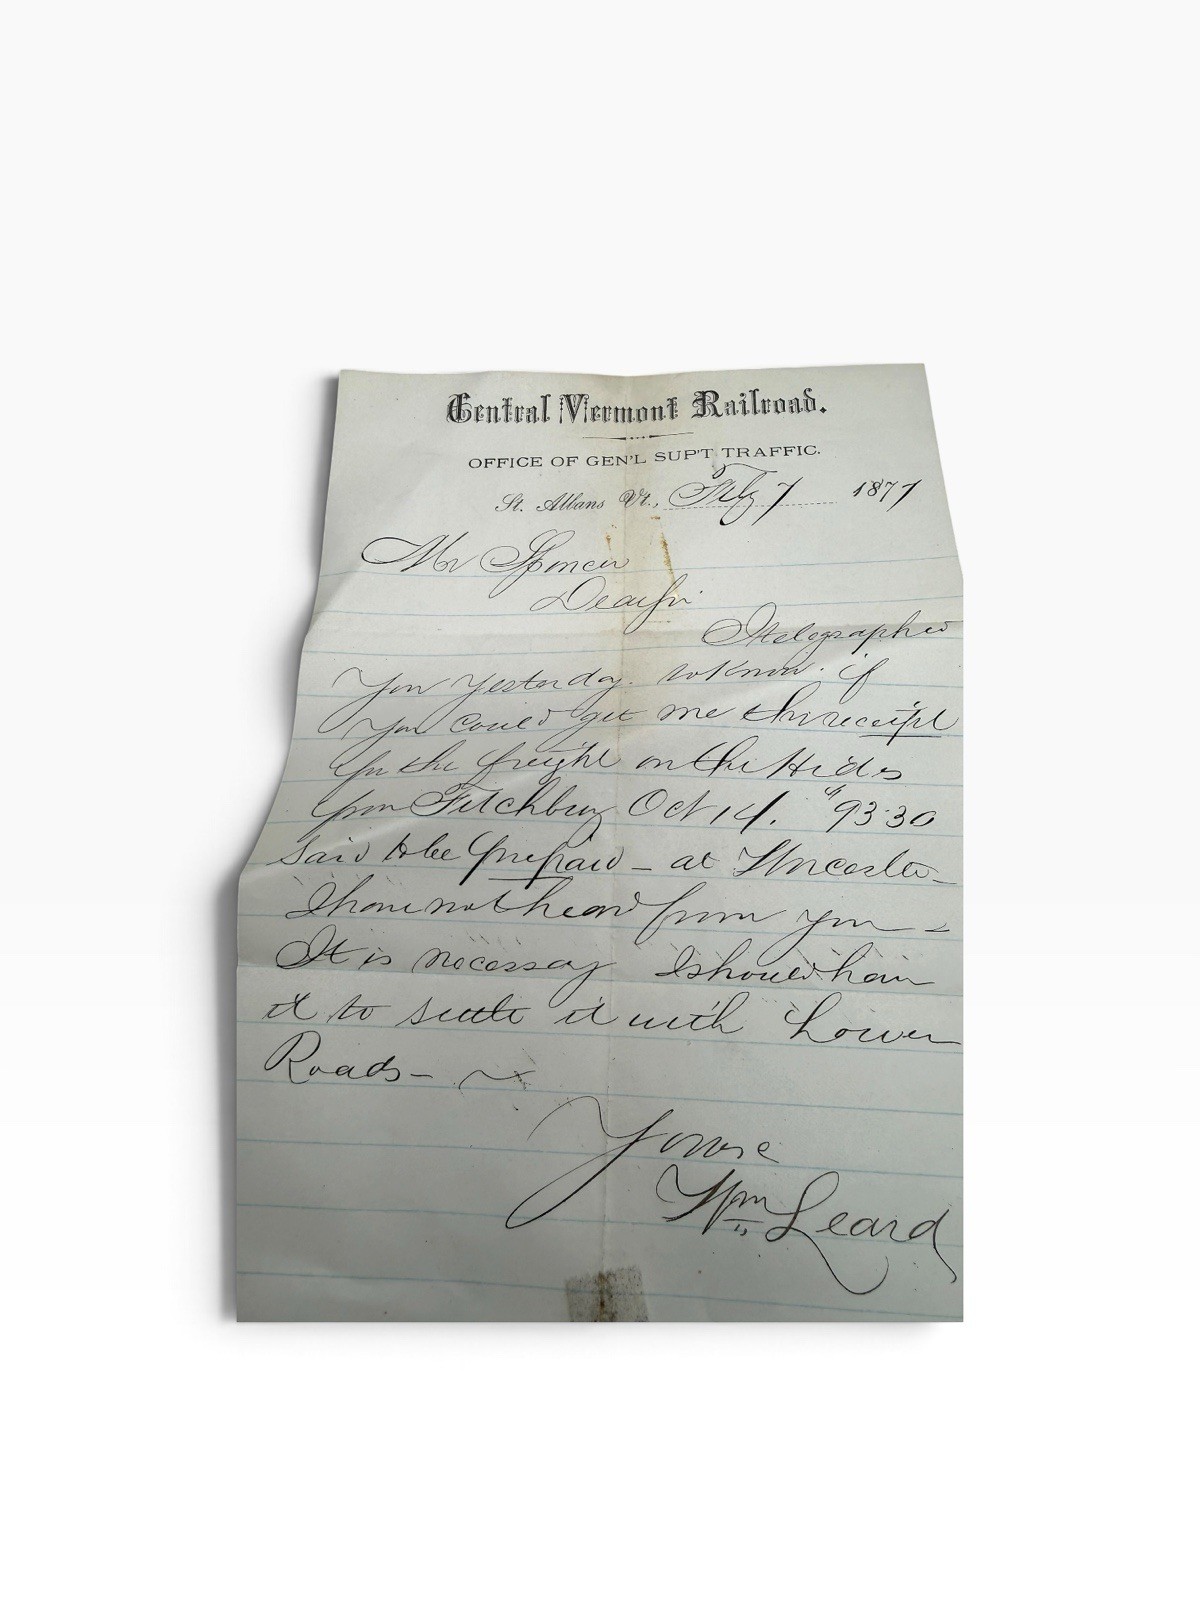 Central Vermont Railroad.
OFFICE OF GEN'L SUP'T TRAFFIC.
St. Albans Vt., Feby 7 1877
Mr Spencer
Dear Sir
I telegraphed
you yesterday to know if
you could get me the receipt
for the freight on the Hides
from Fitchburg Oct 14. "93.30
said to be prepaid - at Worcester -
I have not heard from you -
It is necessary I should have
it to settle it with Lower
Roads -
Yours
Wm Leard